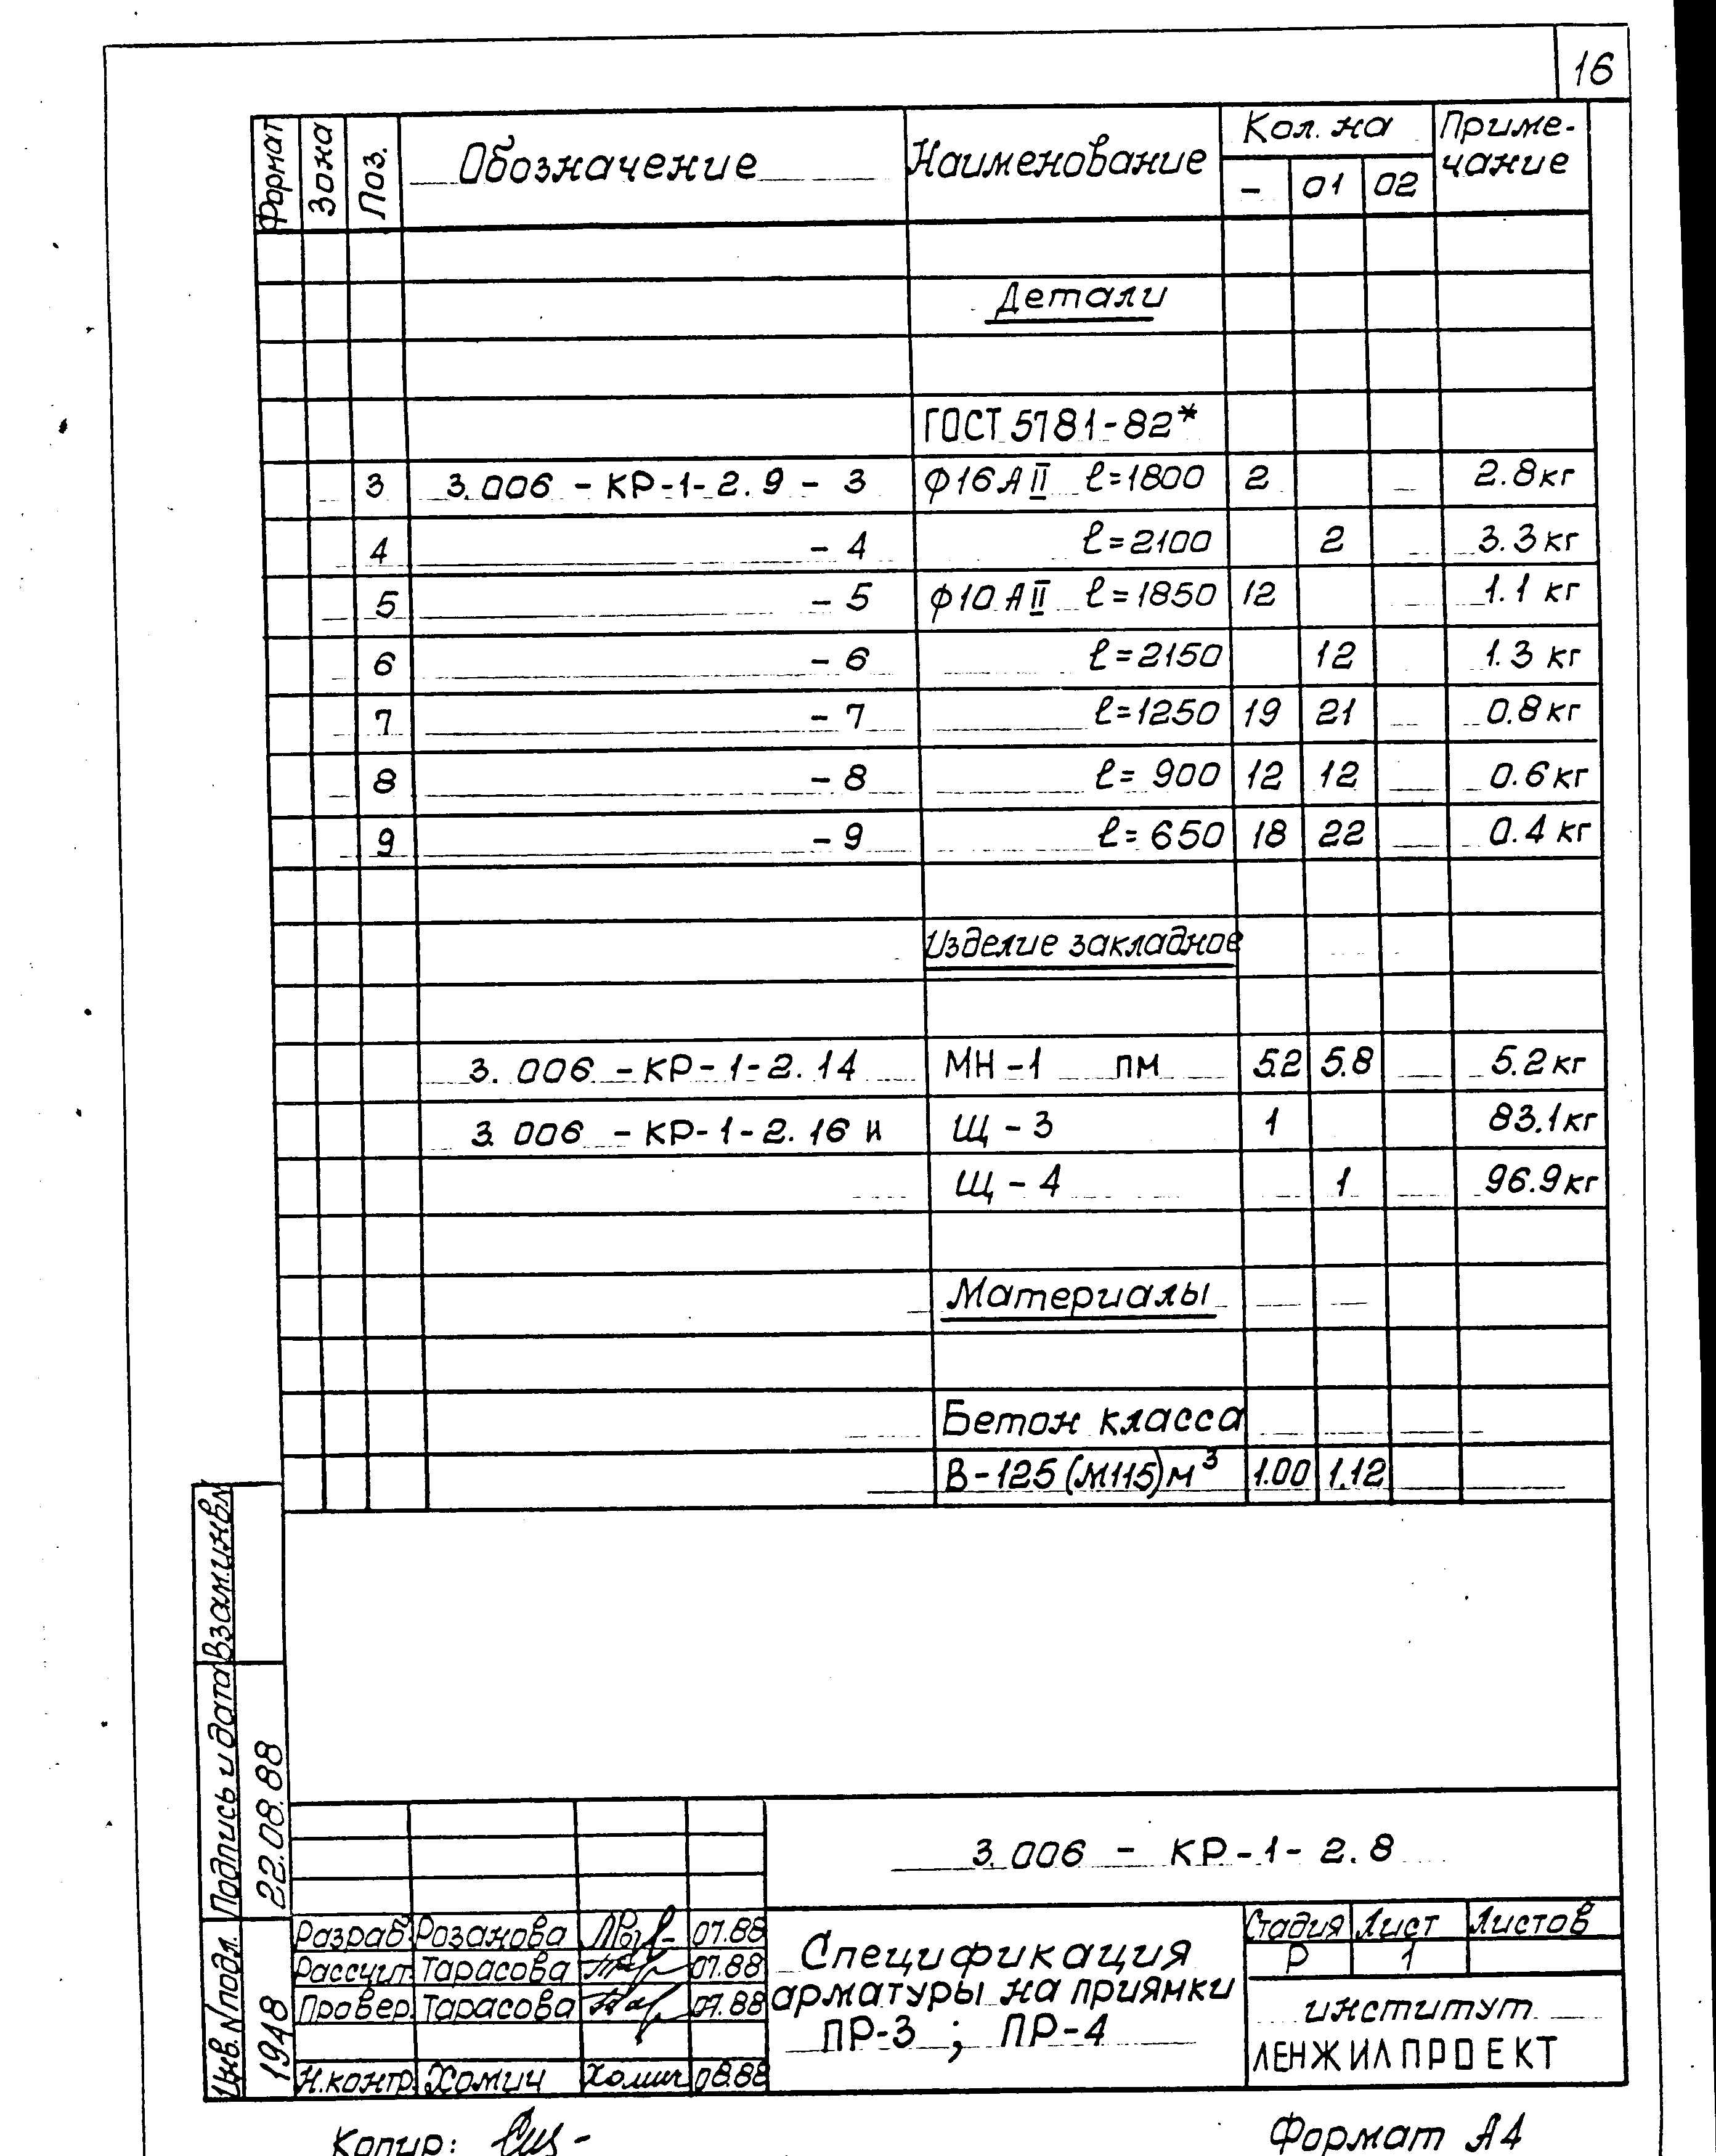 16
Формат Зона Поз. Обозначение Наименование Кол. на Приме-чание
- 01 02
Детали
ГОСТ 5781-82*
3 3.006 - КР-1-2.9 - 3 ф16АII ℓ=1800 2 2.8кг
4 - 4 ℓ=2100 2 3.3кг
5 - 5 ф10АII ℓ=1850 12 1.1 кг
6 - 6 ℓ=2150 12 1.3 кг
7 - 7 ℓ=1250 19 21 0.8кг
8 - 8 ℓ= 900 12 12 0.6кг
9 - 9 ℓ= 650 18 22 0.4 кг
Изделие закладное
3.006 - КР-1-2.14 МН-1 пм 5.2 5.8 5.2кг
3.006 - КР-1-2.16 и Щ-3 1 83.1кг
Щ-4 1 96.9кг
Материалы
Бетон класса
В-125 (М115) м³ 1.00 1.12
Взам.инв.
Подпись и дата 22.08.88
Инв. N подл. 1948
3.006 - КР-1-2.8
Разраб. Розанова 07.88
Рассчит. Тарасова 07.88
Провер. Тарасова 07.88
Н.контр. Хомич Хомич 08.88
Спецификация
арматуры на приямки
ПР-3 ; ПР-4
Стадия Лист Листов
Р 1
институт
ЛЕНЖИЛПРОЕКТ
Копир:
Формат А4